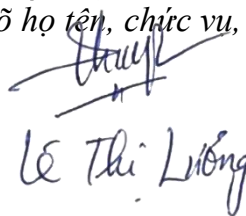 õ họ tên, chức vu,
Lê Thị Luống